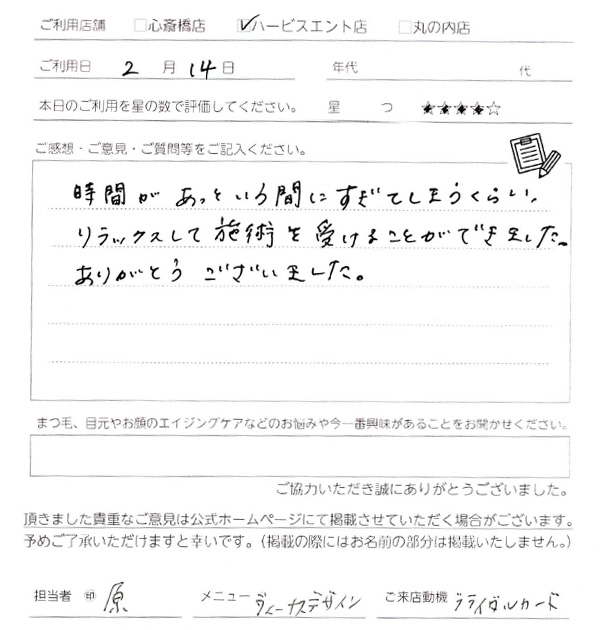 ご利用店舗 □心斎橋店 ☑ハービスエント店 □丸の内店
ご利用日 2 月 14 日 年代 代
本日のご利用を星の数で評価してください。 星 つ ★★★★☆
ご感想・ご意見・ご質問等をご記入ください。
時間が あっという間にすぎてしまうくらい、
リラックスして施術を受けることができました。
ありがとう ございました。
まつ毛、目元やお顔のエイジングケアなどのお悩みや今一番興味があることをお聞かせください。
ご協力いただき誠にありがとうございました。
頂きました貴重なご意見は公式ホームページにて掲載させていただく場合がございます。
予めご了承いただけますと幸いです。(掲載の際にはお名前の部分は掲載いたしません。)
担当者 ㊞ 原 メニュー ヴィーナスデザイン ご来店動機 ブライダルカード